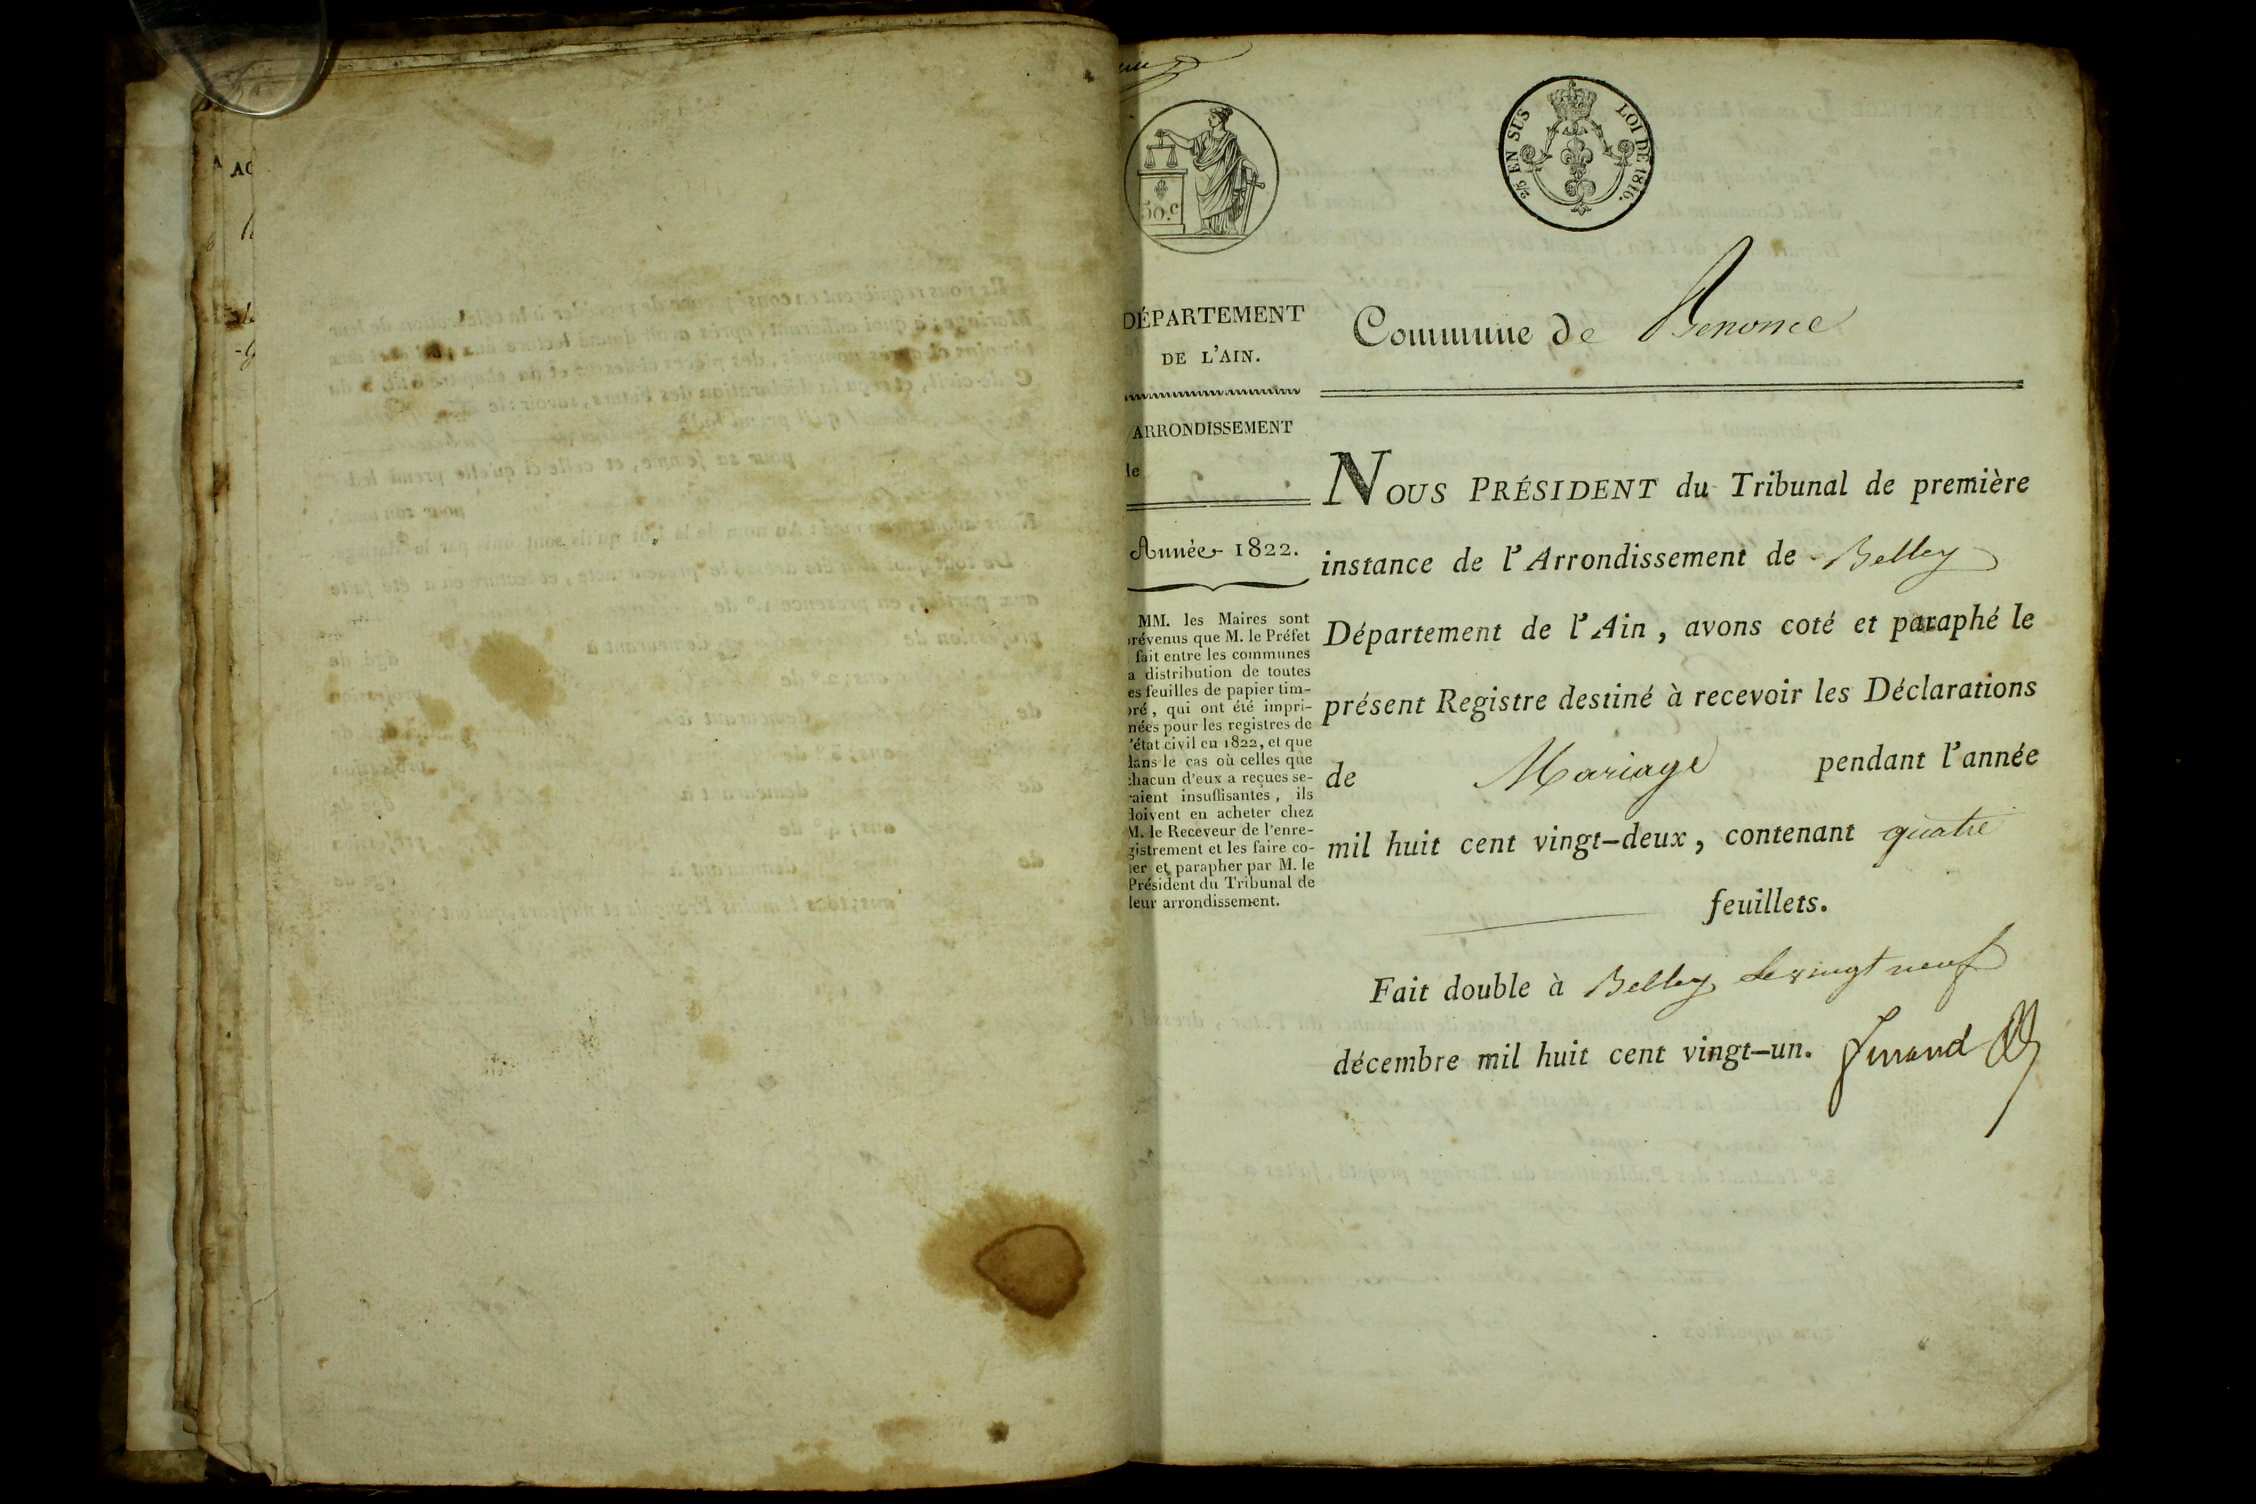 50.c
2/5 EN SUS LOI DE 1816.
DÉPARTEMENT
DE L'AIN.
ARRONDISSEMENT
de
Année 1822.
MM. les Maires sont
prévenus que M. le Préfet
fait entre les communes
la distribution de toutes
les feuilles de papier tim-
bré, qui ont été impri-
mées pour les registres de
l'état civil en 1822, et que
dans le cas où celles que
chacun d'eux a reçues se-
raient insuffisantes, ils
doivent en acheter chez
M. le Receveur de l'enre-
gistrement et les faire co-
ter et parapher par M. le
Président du Tribunal de
leur arrondissement.
Commune de Benonce
NOUS PRÉSIDENT du Tribunal de première
instance de l'Arrondissement de Belley
Département de l'Ain, avons coté et paraphé le
présent Registre destiné à recevoir les Déclarations
de Mariage pendant l'année
mil huit cent vingt-deux, contenant quatre
feuillets.
Fait double à Belley le vingt neuf
décembre mil huit cent vingt-un.